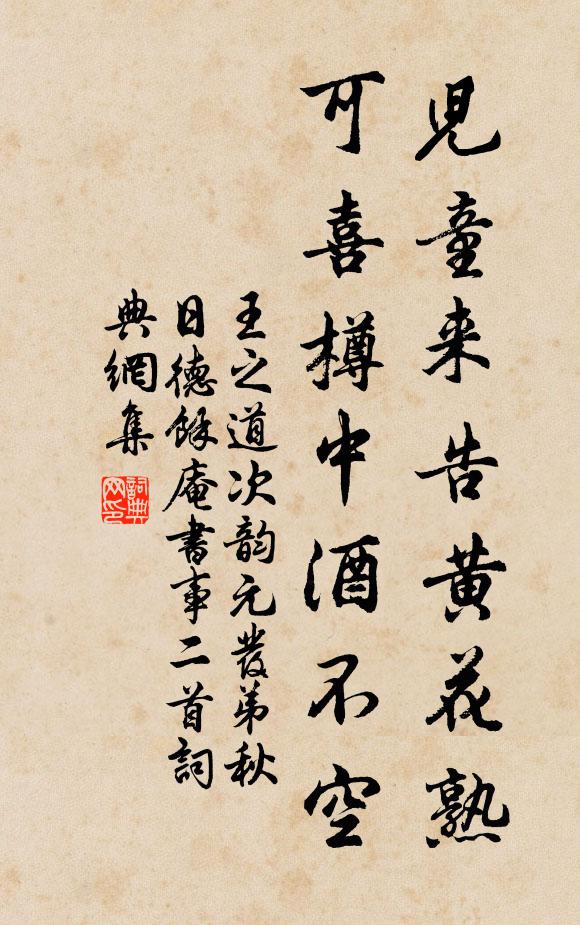 兒童来告黄花熟
可喜樽中酒不空
王之道次韵元發弟秋
日德餘庵書事二首詞
典網集
詞典网印